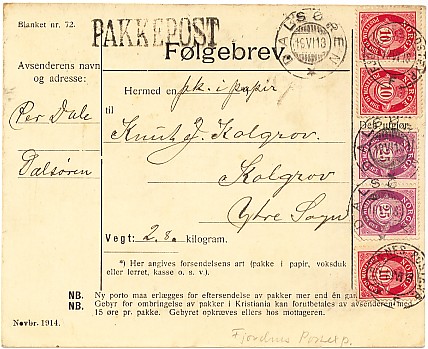 Blanket nr. 72.
PAKKEPOST
Følgebrev
DALSØREN
18 VI 18
Avsenderens navn
og adresse:
Per Dale
Dalsören
Hermed en pk. i papir
til
Knut J. Kolgrov.
Kolgrov
Ytre Sogn
Vegt: 2.8. kilogram.
*) Her angives forsendelsens art (pakke i papir, voksduk
eller lerret, kasse o. s. v.).
NB. Ny porto maa erlægges for eftersendelse av pakker mer end én
NB. Gebyr for ombringelse av pakker i Kristiania kan forutbetales av avsenderen med
15 øre pr. pakke. Gebyret opkræves ellers hos mottageren.
Novbr. 1914.
Fjordnes Postexp.
10
NORGE
10
NORGE
25
NORGE
25
NORGE
10